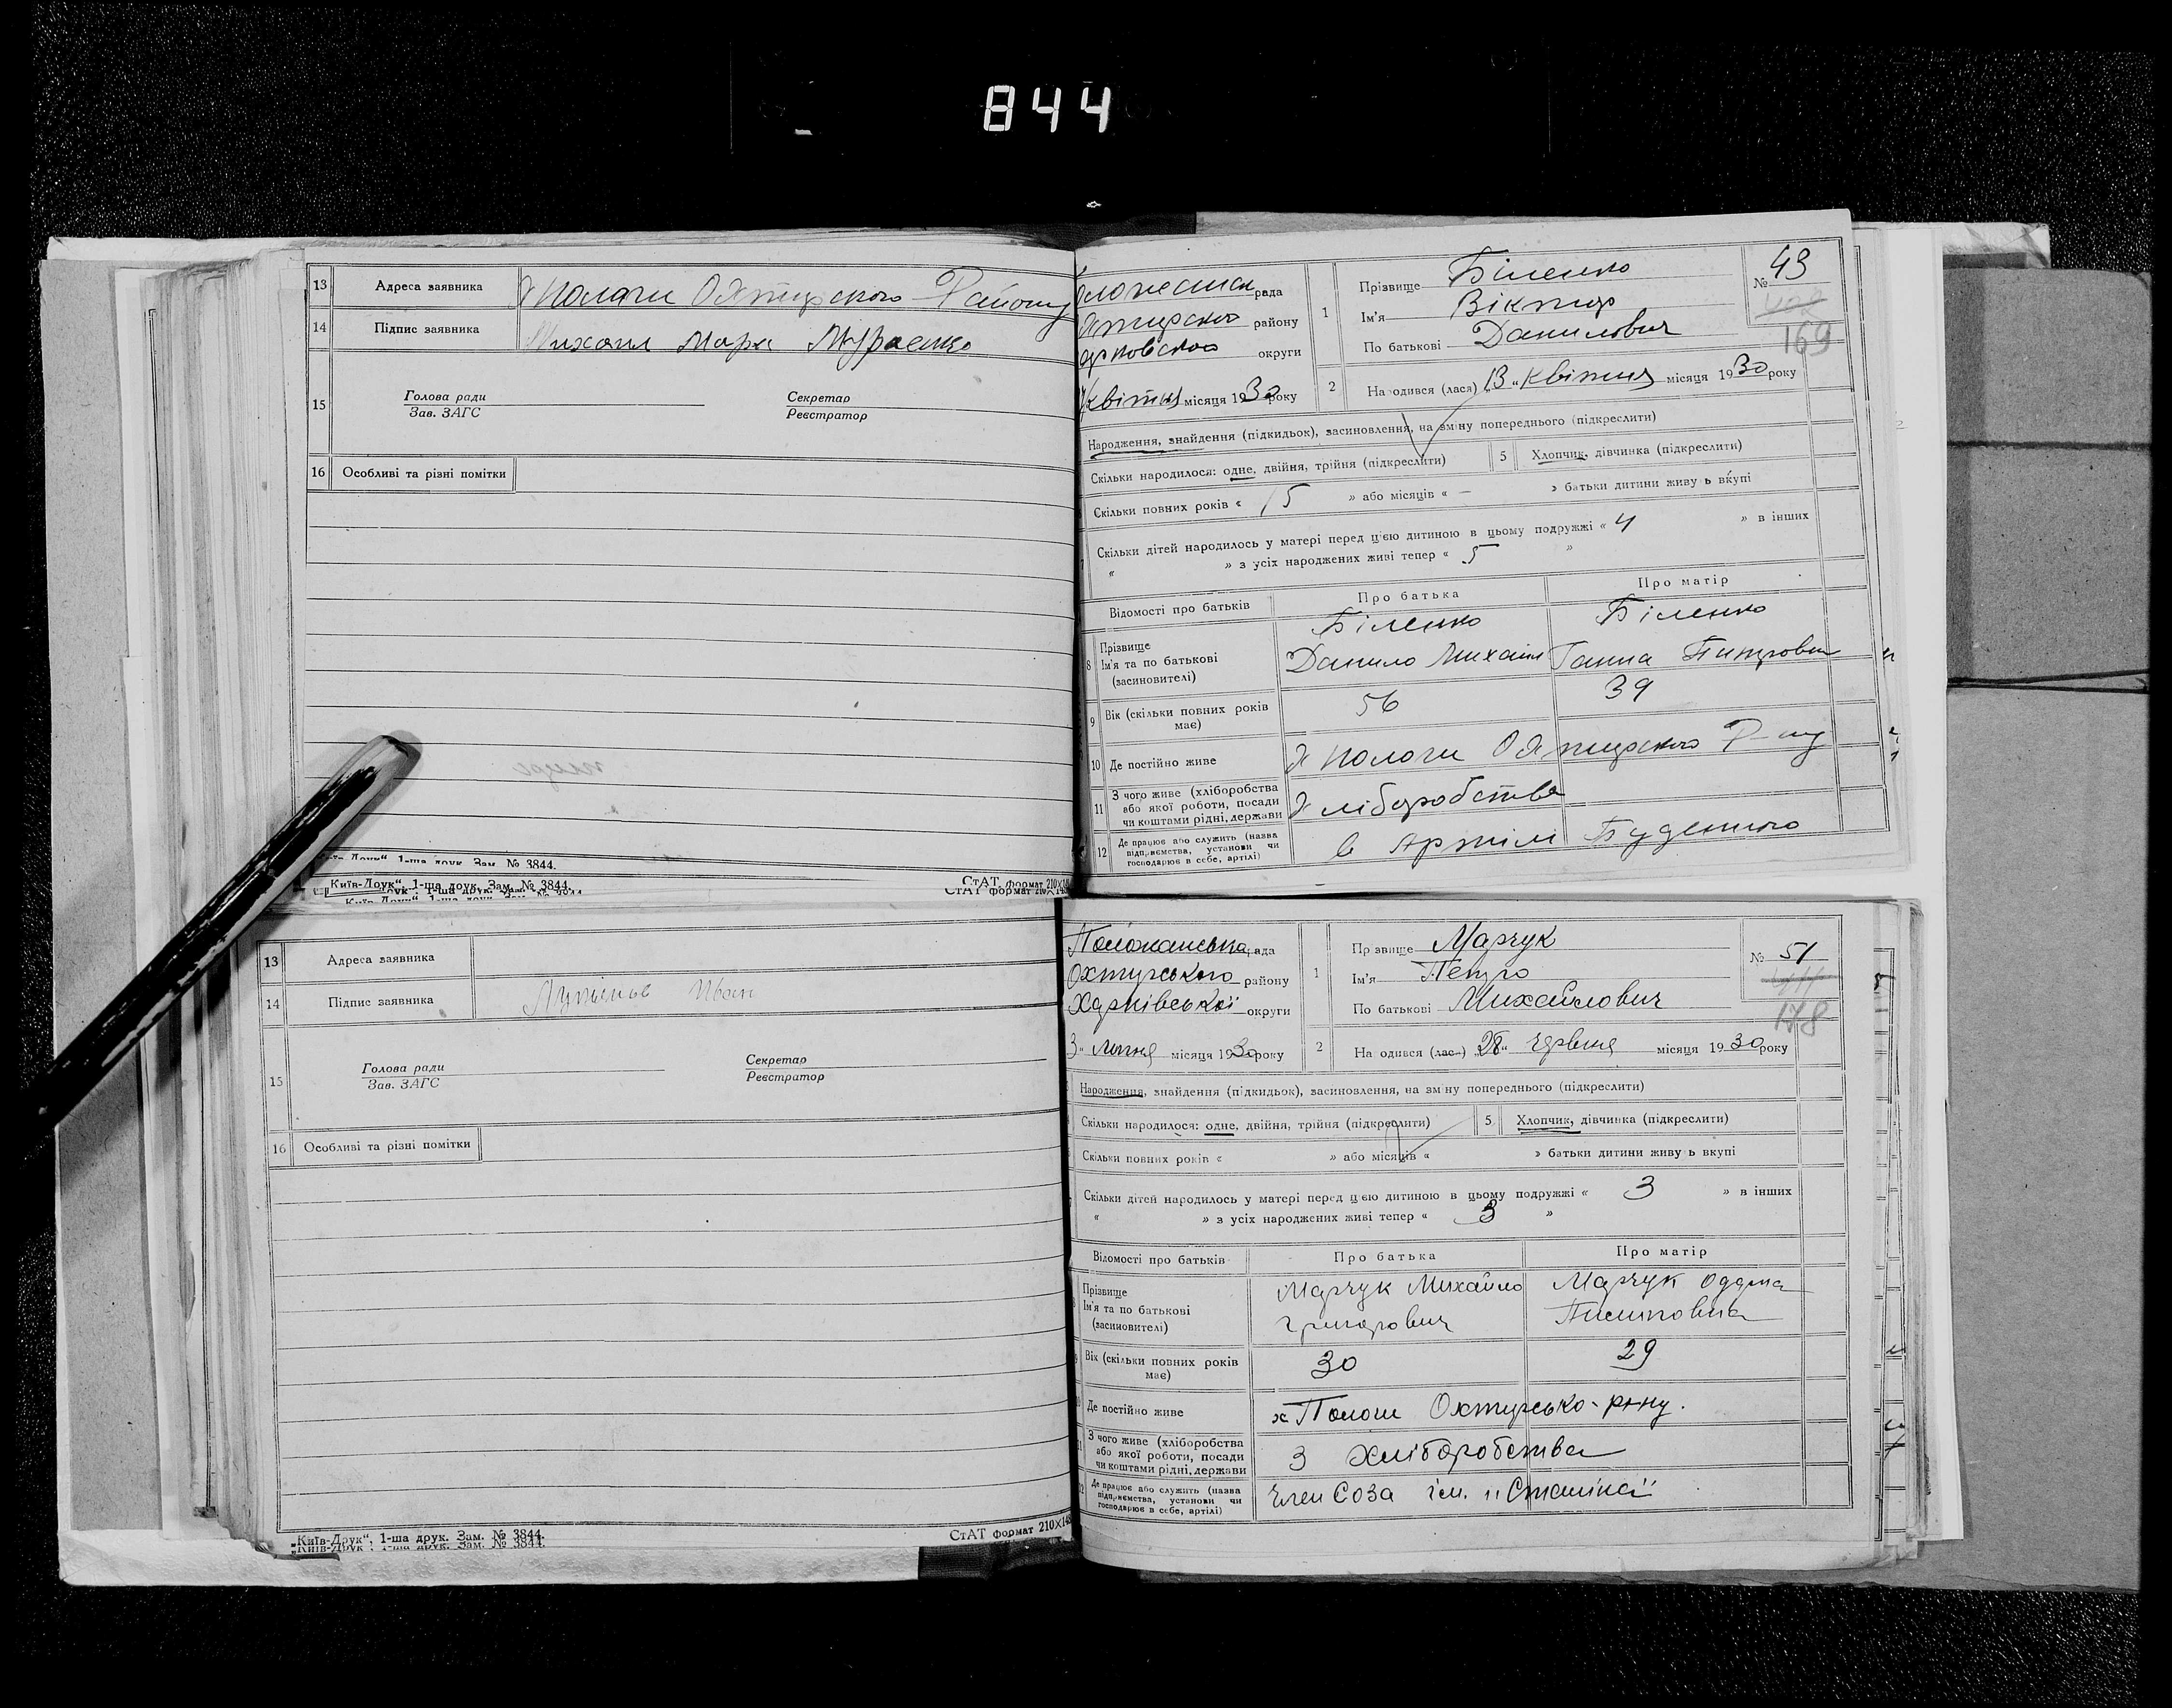 844
13 Адреса заявника х Пологи Охтирского Району
14 Підпис заявника Михаил Марк
15 Голова ради Секретар
Зав. ЗАГС Реєстратор
16 Особливі та різні помітки
Київ-Друк“, 1-ша друк. Зам. № 3844.
„Київ-Друк“, 1-ша друк. Зам. № 3844. СтАТ формат 210×148
рада
району
округи
Квітня місяця 1930 року
1 Прізвище Біленко
Ім'я Віктор
По батькові Данилович
№ 43
169
2 На одився (лася) „13“ Квітня місяця 1930 року
Народження, знайдення (підкидьок), засиновлення, на зміну попереднього (підкреслити)
Скільки народилося: одне, двійня, трійня (підкреслити) 5 Хлопчик, дівчинка (підкреслити)
Скільки повних років « 15 » або місяців « — » батьки дитини живу ь вкупі
Скільки дітей народилось у матері перед цією дитиною в цьому подружжі « 4 » в інших
« » з усіх народжених живі тепер « 5 »
Відомості про батьків Про батька Про матір
8 Прізвище Біленко Біленко
Ім'я та по батькові Данило Михайл Ганна
(засиновителі)
9 Вік (скільки повних років має) 56 39
10 Де постійно живе х Пологи Охтирского Р-ну
11 З чого живе (хліборобства або якої роботи, посади чи коштами рідні, держави хліборобства
12 Де працює або служить (назва підприємства, установи чи господарює в себе, артілі) в Артілі Буденного
13 Адреса заявника
14 Підпис заявника Іван
15 Голова ради Секретар
Зав. ЗАГС Реєстратор
16 Особливі та різні помітки
„Київ-Друк“, 1-ша друк. Зам. № 3844. СтАТ формат 210×148
Положанська рада
Охтирського району
Харківської округи
3“ липня місяця 1930 року
1 Пр звище Марчук
Ім'я Петро
По батькові Михайлович
№ 51
178
2 На одився (лас-) „28“ червня місяця 1930 року
Народження, знайдення (підкидьок), засиновлення, на зміну попереднього (підкреслити)
Скільки народилося: одне, двійня, трійня (підкреслити) 5 Хлопчик, дівчинка (підкреслити)
Скільки повних років « » або місяців « » батьки дитини живу ь вкупі
Скільки дітей народилось у матері перед цією дитиною в цьому подружжі « 3 » в інших
« » з усіх народжених живі тепер « 3 »
Відомості про батьків Про батька Про матір
Прізвище Марчук Михайло Марчук
Ім'я та по батькові Григорович
(засиновителі)
Вік (скільки повних років має) 30 29
Де постійно живе х Пологи Охтирсько-р-ну.
З чого живе (хліборобства або якої роботи, посади чи коштами рідні, держави З хліборобства
12 Де працює або служить (назва підприємства, установи чи господарює в себе, артілі) Член Соза ім. „Сталіна“